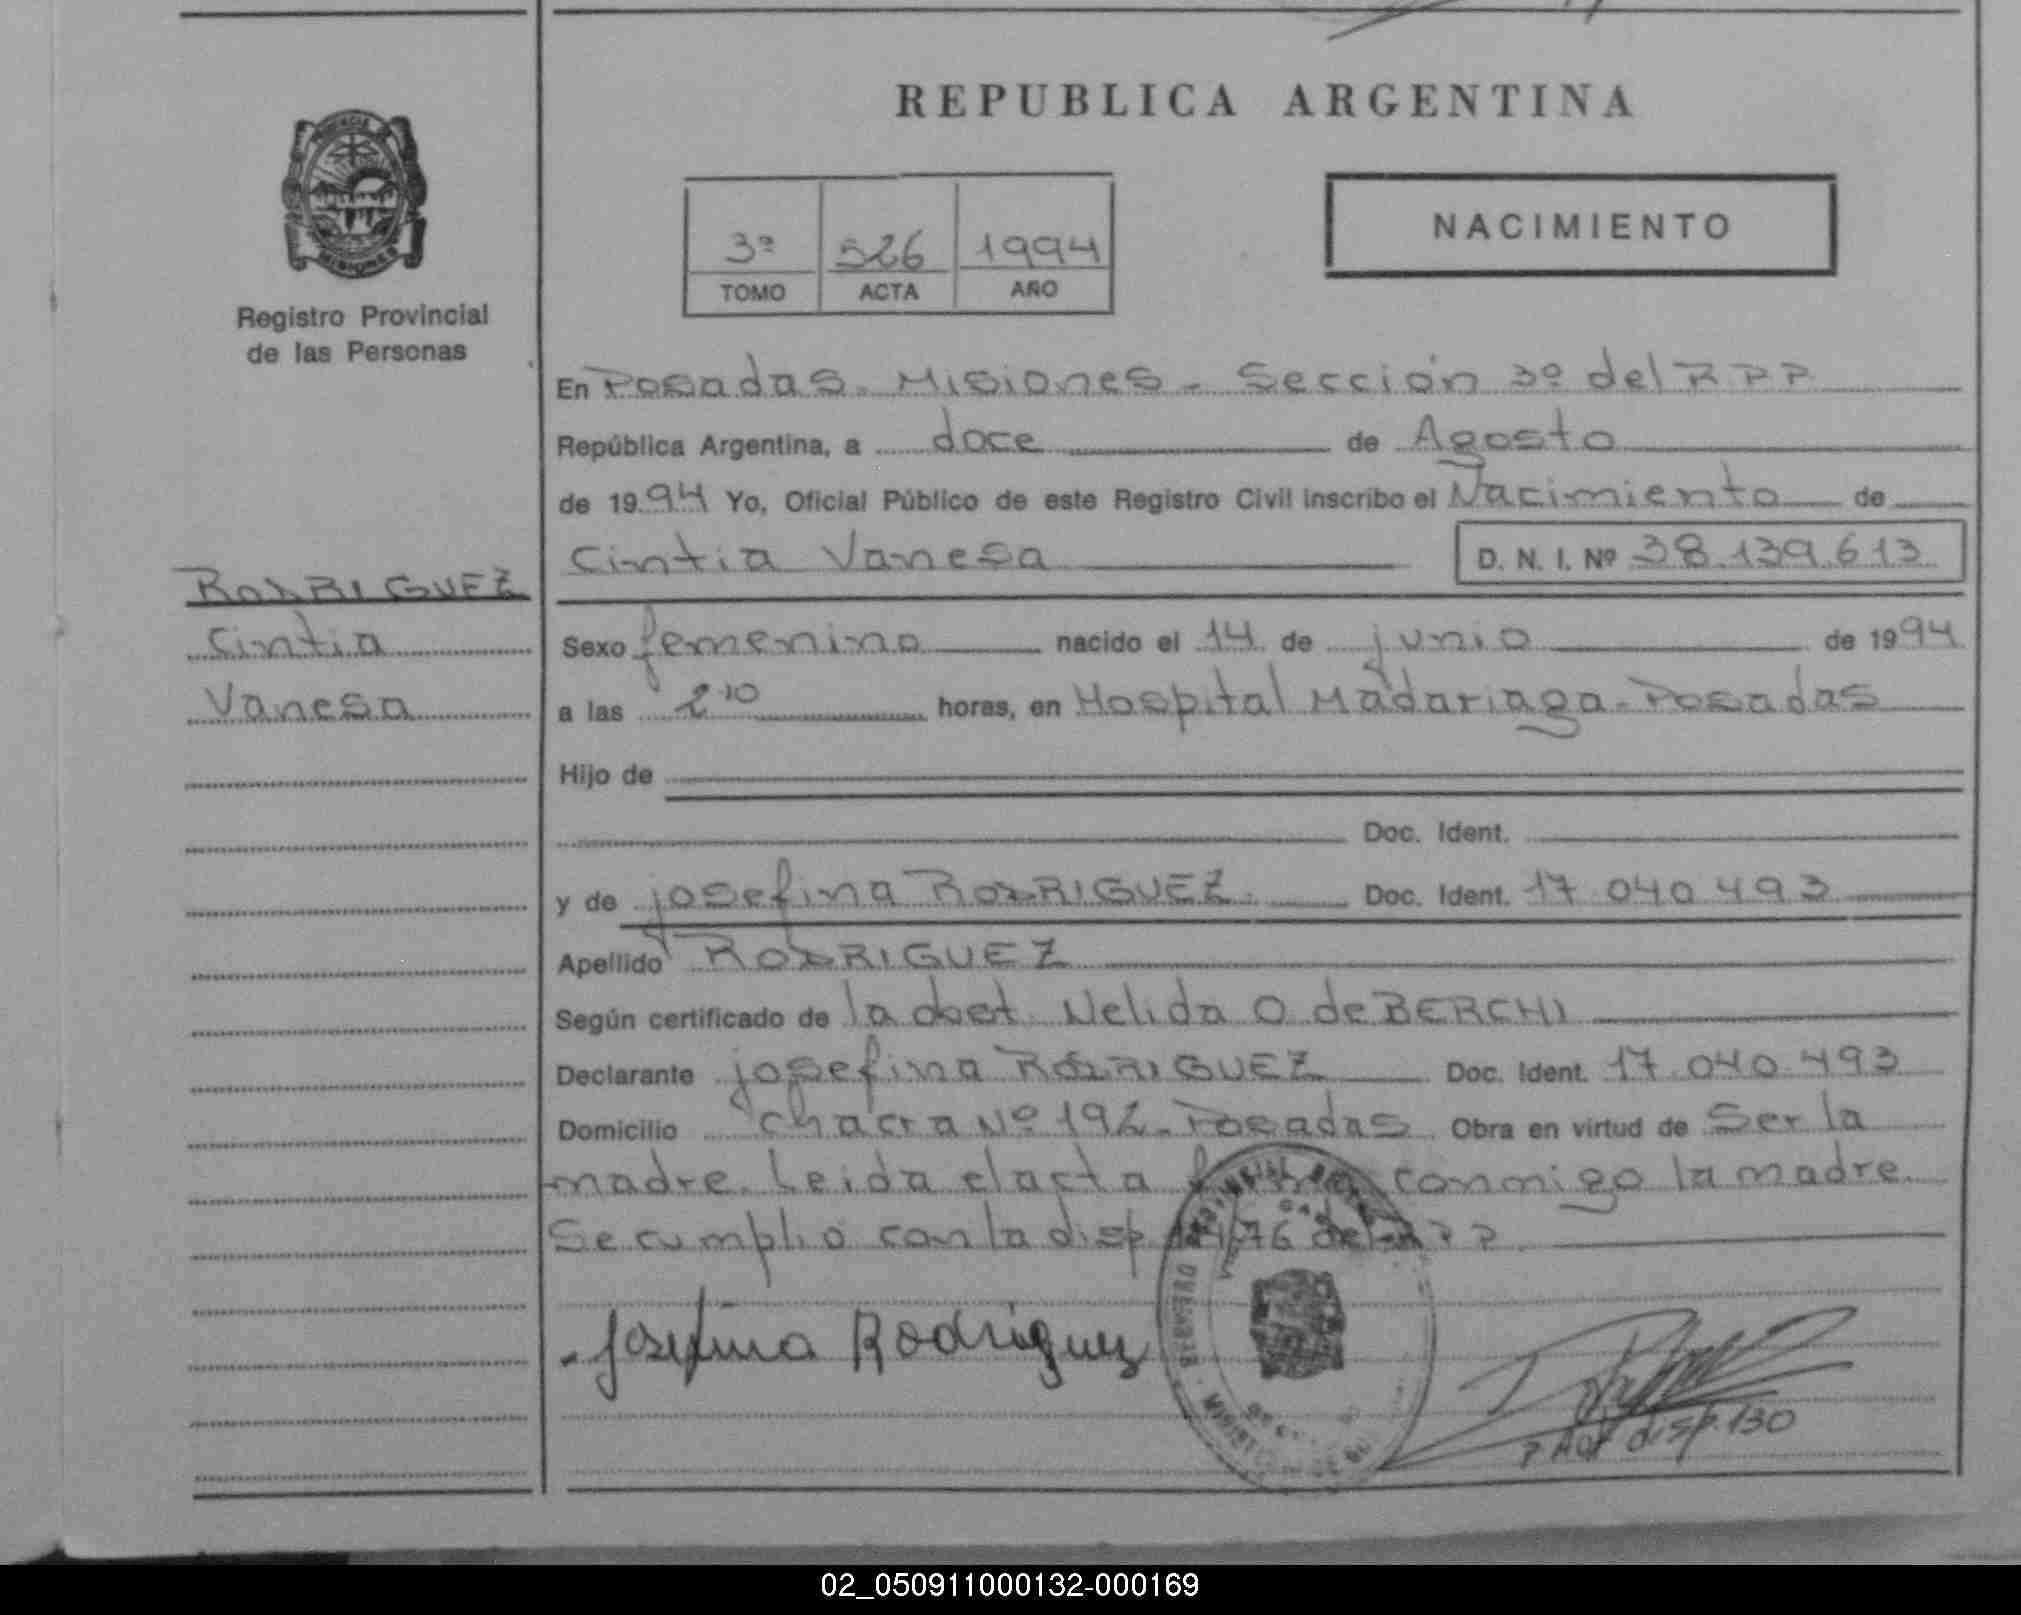 REPUBLICA ARGENTINA
NACIMIENTO
3ª 526 1994
TOMO ACTA AÑO
Registro Provincial
de las Personas
En Posadas. Misiones - Sección 3º del R P P
República Argentina, a doce de Agosto
de 1994 Yo, Oficial Público de este Registro Civil inscribo el Nacimiento de
Cintia Vanesa D. N. I. Nº 38.139.613
RODRIGUEZ
Cintia
Vanesa
Sexo femenino nacido el 14 de junio de 1994
a las 2 10 horas, en Hospital Madariaga - Posadas
Hijo de
Doc. Ident.
y de josefina RODRIGUEZ. Doc. Ident. 17.040.493
Apellido RODRIGUEZ
Según certificado de la obst. Nelida O. de BERCHI
Declarante josefina RODRIGUEZ Doc. Ident. 17.040.493
Domicilio chacra Nº 192 - Posadas Obra en virtud de Ser la
madre. Leida el acta firma conmigo la madre.
Se cumplió con la disp. /76 del R P P.
Josefina Rodriguez
disp. 130
02_050911000132-000169